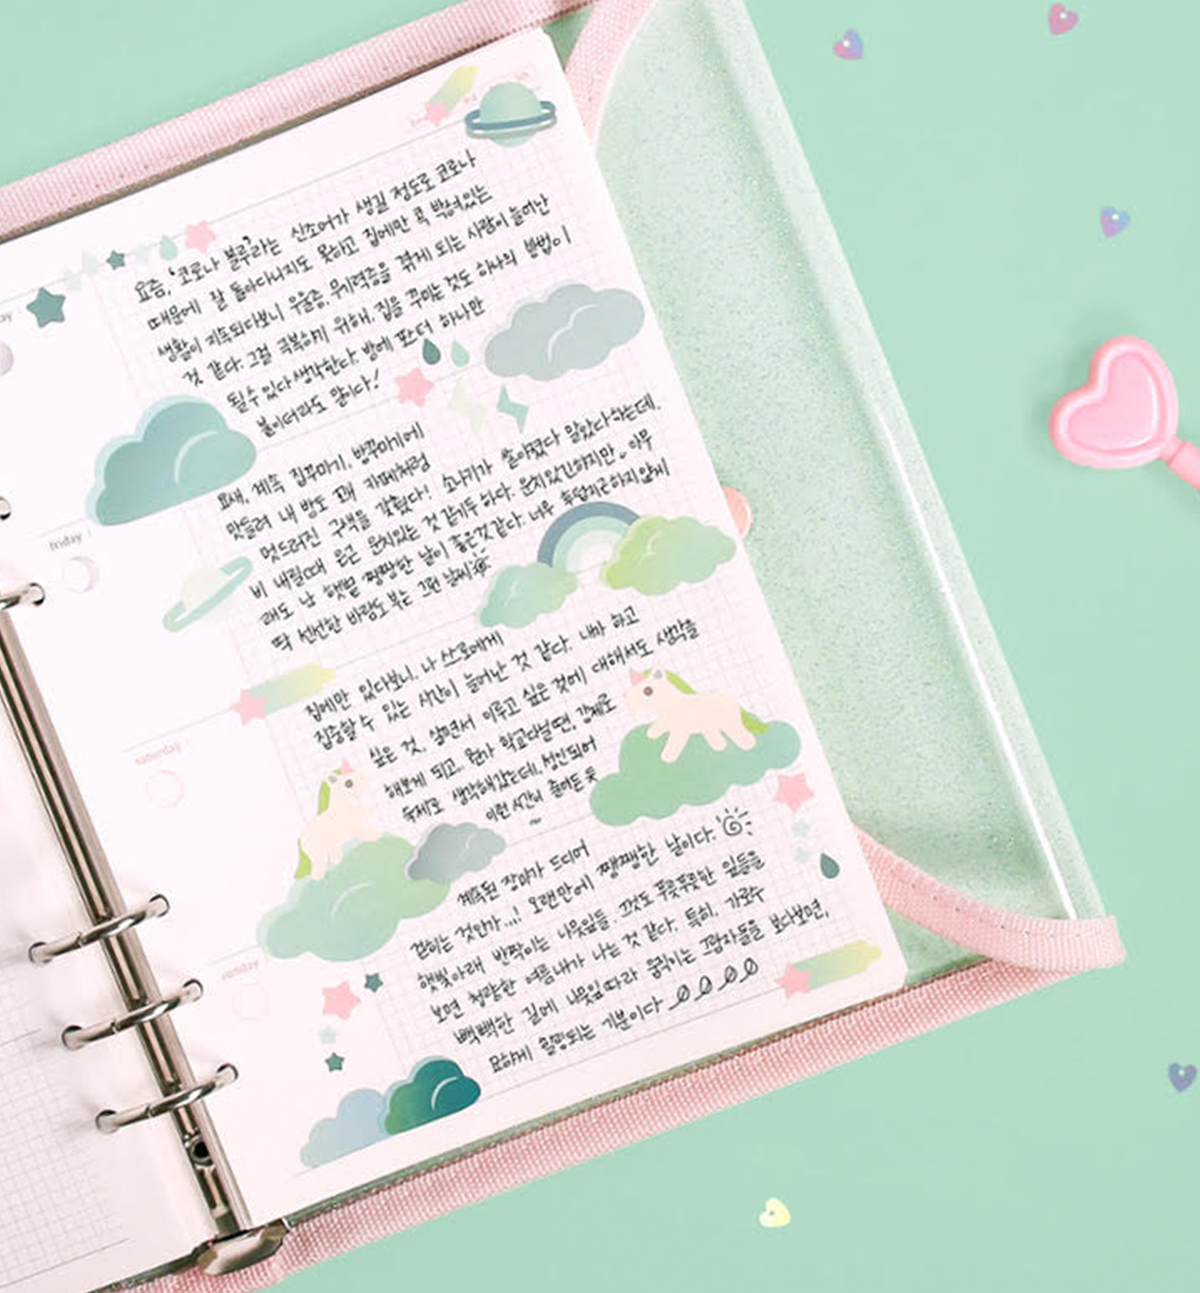 요즘, '코로나 블루'라는 신조어가 생길 정도로 코로나
때문에 잘 돌아다니지도 못하고 집에만 콕 박혀있는
생활이 지속되다보니 우울증, 무기력증을 겪게 되는 사람이 늘어난
것 같다. 그걸 극복하기 위해, 집을 꾸미는 것도 하나의 방법이
될 수 있다 생각한다. 방에 포스터 하나만
붙이더라도 말이다!
day
요새, 계속 집꾸미기, 방꾸미기에
맛들려 내 방도 꽤 카페처럼
멋드러진 구색을 갖췄다! 소나기가 쏟아졌다 말았다 하는데,
비 내릴때 은근 운치있는 것 같기두 하다. 운치있긴하지만, 아무
래도 난 햇볕 쨍쨍한 날이 좋은것 같다. 너무 후덥지근하지않게
딱 선선한 바람도 부는 그런 날씨
friday
집에만 있다보니, 나 스스로에게
집중할 수 있는 시간이 늘어난 것 같다. 내가 하고
싶은 것, 살면서 이루고 싶은 것에 대해서도 생각을
해보게 되고.. 뭔가 학교다닐땐, 강제로
숙제로 생각해갔는데, 성인되어
이런 시간이 줄어든 듯
saturday
계속된 장마가 드디어
걷히는 것인가...! 오랜만에 쨍쨍한 날이다.
햇빛아래 반짝이는 나뭇잎들 그것도 푸릇푸릇한 잎들을
보면 청량한 여름내가 나는 것 같다. 특히, 가로수
빽빽한 길에 나뭇잎따라 움직이는 그림자들을 보다보면,
묘하게 힐링되는 기분이다
sunday